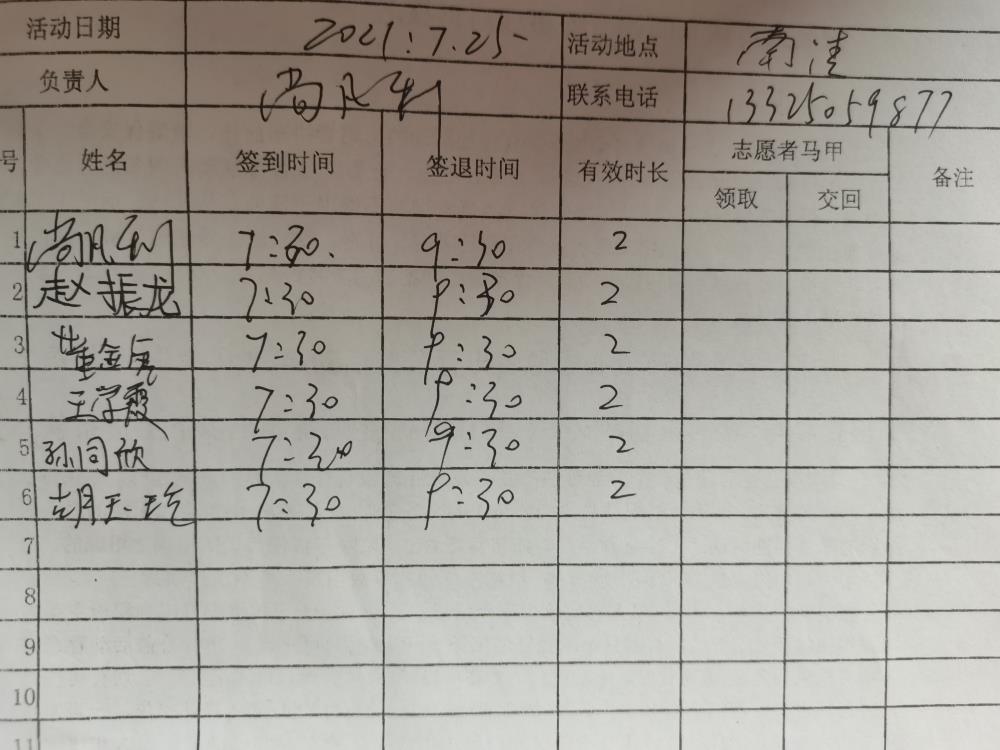 活动日期 2021.7.25 活动地点 南清
负责人 尚凡利 联系电话 13325059877
号 姓名 签到时间 签退时间 有效时长 志愿者马甲 备注
领取 交回
1 尚凡利 7:30 9:30 2
2 赵振龙 7:30 9:30 2
3 董金 7:30 9:30 2
4 王学霞 7:30 9:30 2
5 孙同欣 7:30 9:30 2
6 胡玉 7:30 9:30 2
7
8
9
10
11